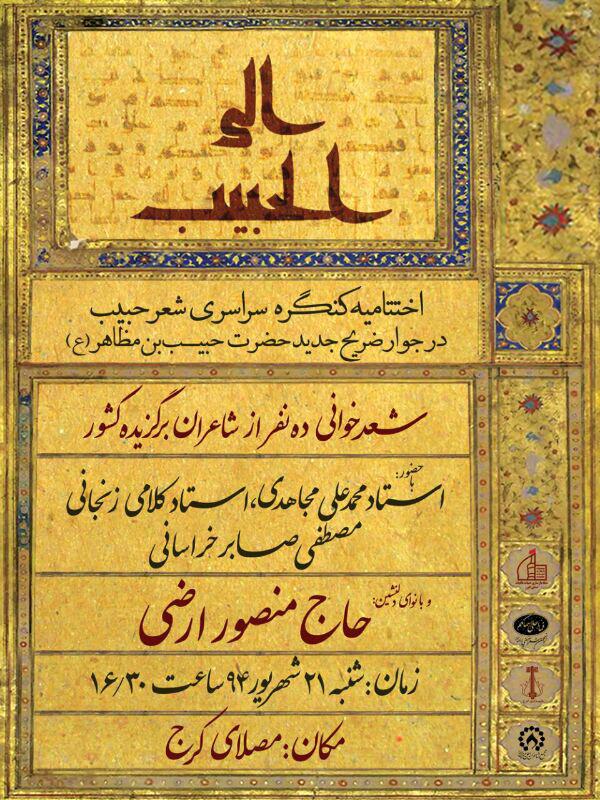 الی
الحبیب
اختتامیه کنگره سراسری شعر حبیب
در جوار ضریح جدید حضرت حبیب بن مظاهر (ع)
شعر خوانی ده نفر از شاعران برگزیده کشور
با حضور:
استاد محمد علی مجاهدی، استاد کلامی زنجانی
مصطفی صابر خراسانی
و با نوای دلنشین:
حاج منصور ارضی
زمان: شنبه ۲۱ شهریور ۹۴ ساعت ۱۶٫۳۰
مکان: مصلای کرج